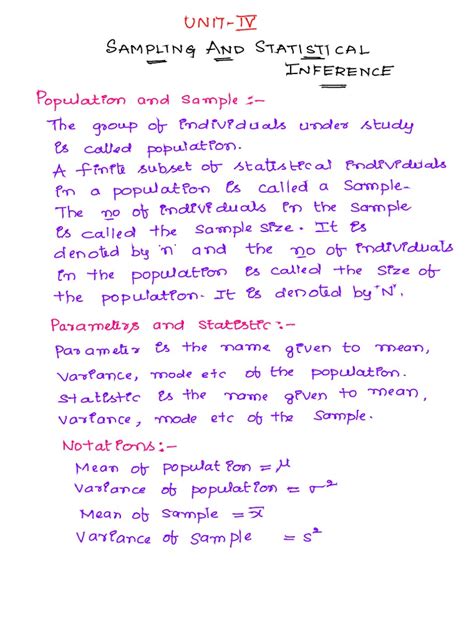 UNIT-IV
SAMPLING AND STATISTICAL
INFERENCE
Population and Sample :-
The group of individuals under study
is called population.
A finite subset of statistical individuals
in a population is called a Sample.
The no of individuals in the sample
is called the Sample size. It is
denoted by 'n' and the no of individuals
in the population is called the size of
the population. It is denoted by 'N'.
Parameters and Statistic :-
Parameter is the name given to mean,
variance, mode etc of the population.
Statistic is the name given to mean,
variance, mode etc of the Sample.
Notations :-
Mean of population = μ
Variance of population = σ²
Mean of Sample = x̅
Variance of Sample = s²